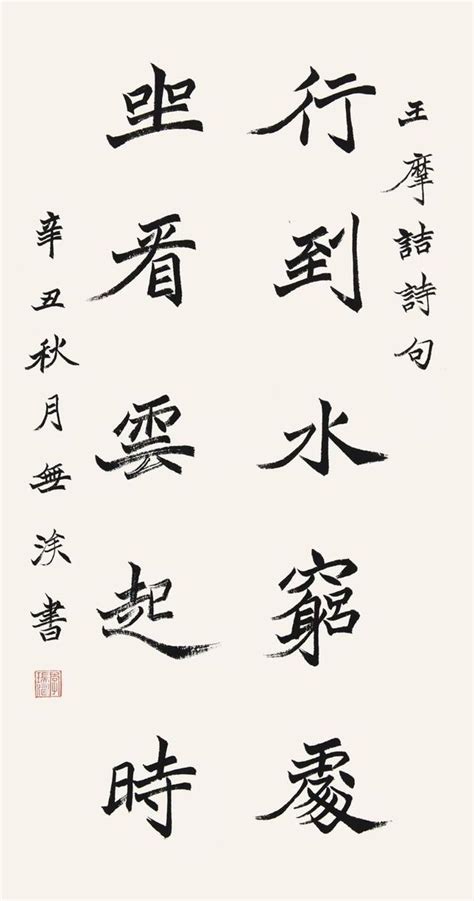 王摩詰詩句
行到水窮處
坐看雲起時
辛丑秋月無涘書